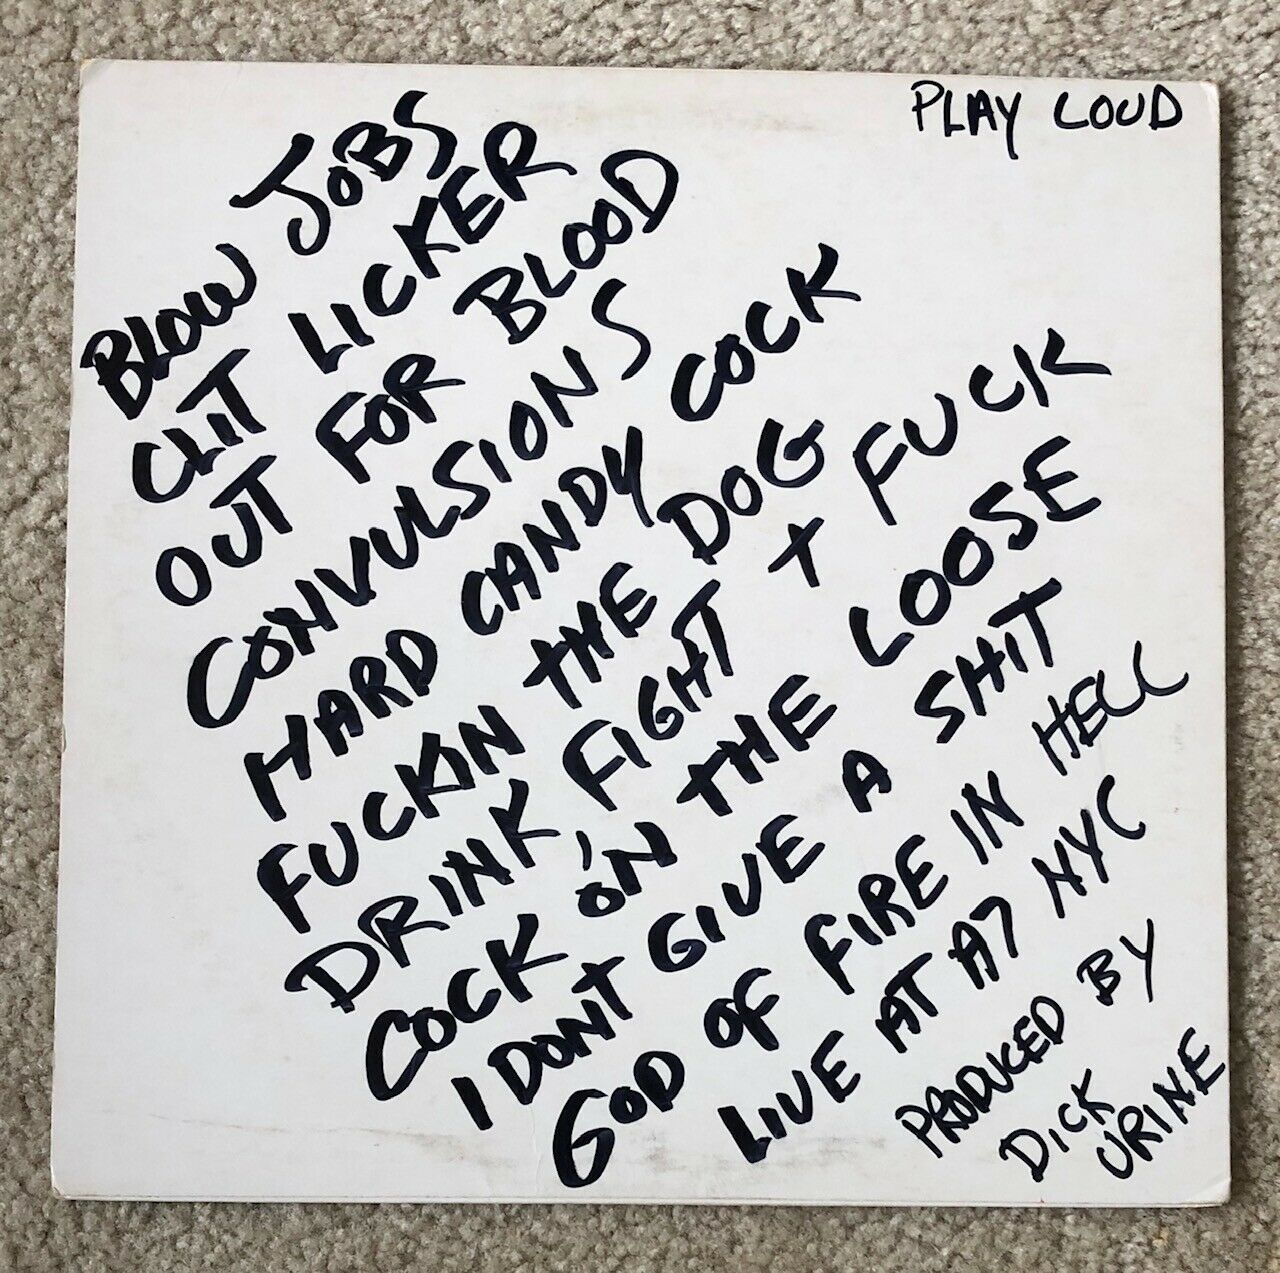 PLAY LOUD
BLOW JOBS
CLIT LICKER
OUT FOR BLOOD
CONVULSIONS
HARD CANDY COCK
FUCKIN THE DOG
DRINK FIGHT + FUCK
COCK ON THE LOOSE
I DONT GIVE A SHIT
GOD OF FIRE IN HELL
LIVE AT A7 NYC
PRODUCED BY
DICK
URINE